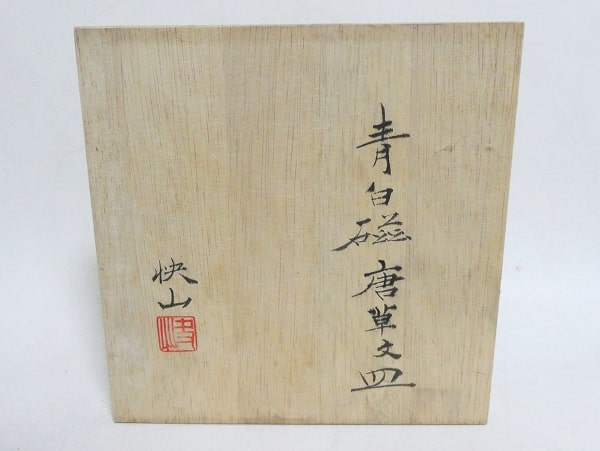 青白磁唐草文皿
快山